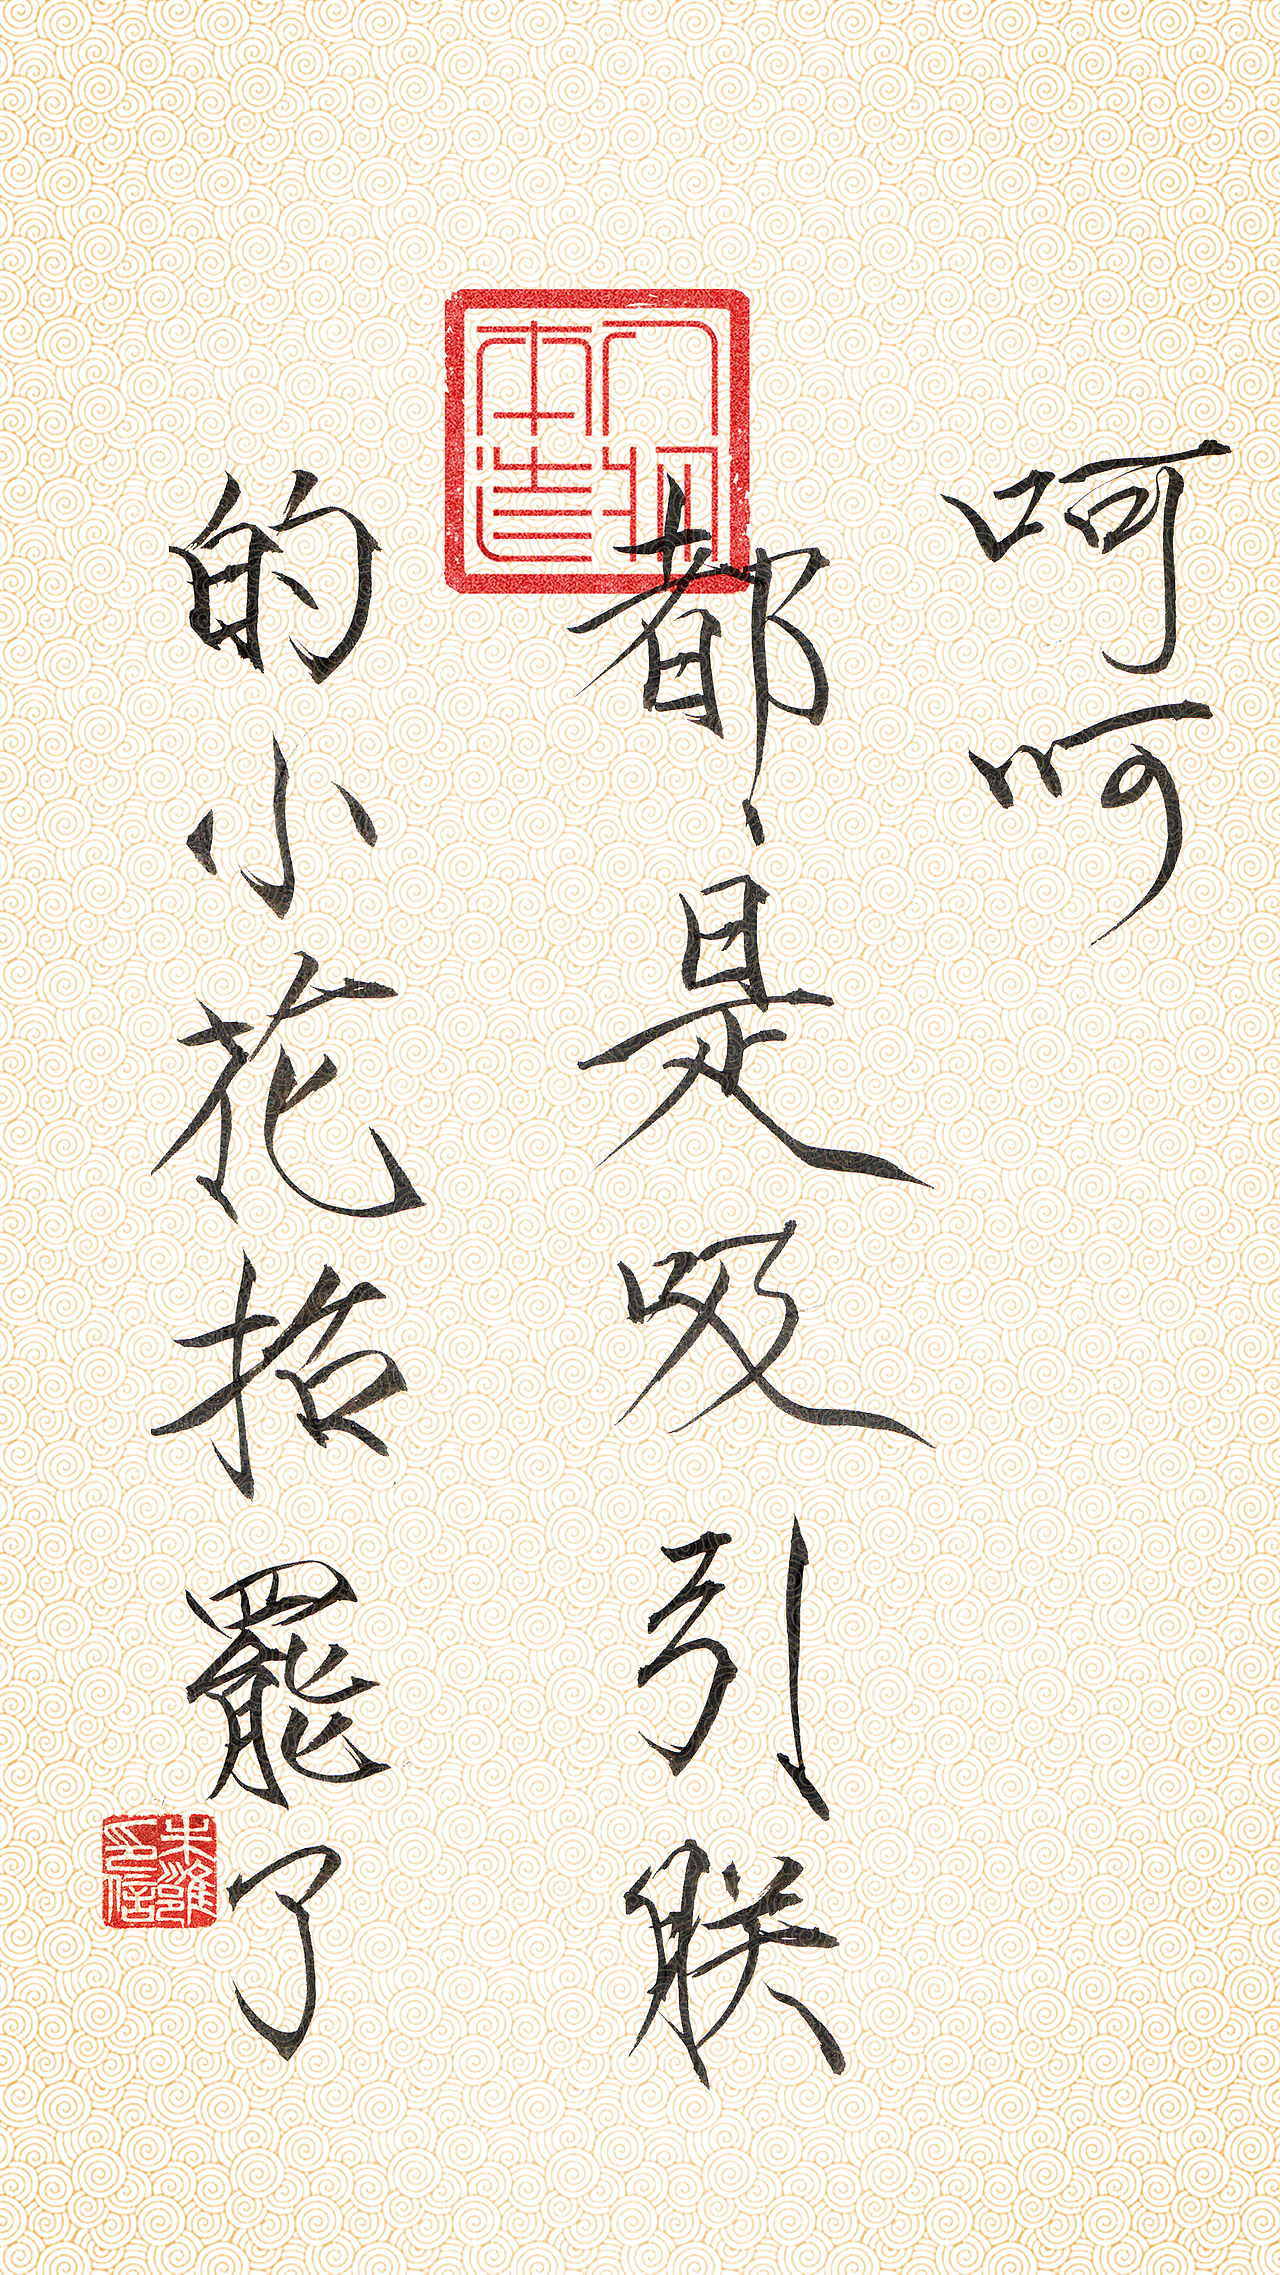 呵呵
都是吸引朕
的小花招罷了